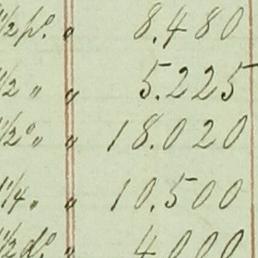 1/2 po. " 8.480
1/2 " " 5.225
1/2 o " 18.020
1 1/4 " " 10.500
1/2 do. " 4.000